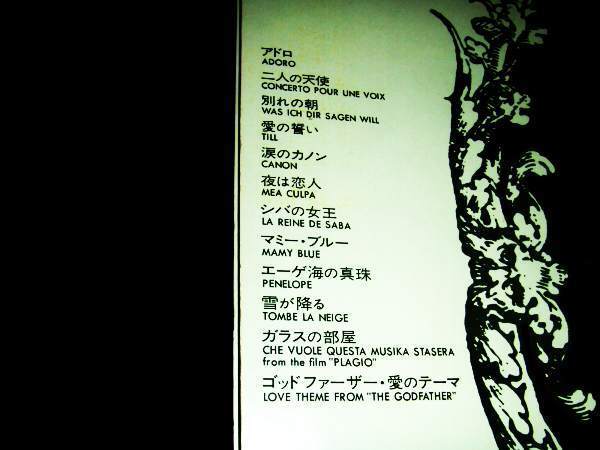 アドロ
ADORO
二人の天使
CONCERTO POUR UNE VOIX
別れの朝
WAS ICH DIR SAGEN WILL
愛の誓い
TILL
涙のカノン
CANON
夜は恋人
MEA CULPA
シバの女王
LA REINE DE SABA
マミー・ブルー
MAMY BLUE
エーゲ海の真珠
PENELOPE
雪が降る
TOMBE LA NEIGE
ガラスの部屋
CHE VUOLE QUESTA MUSIKA STASERA
from the film "PLAGIO"
ゴッドファーザー・愛のテーマ
LOVE THEME FROM "THE GODFATHER"